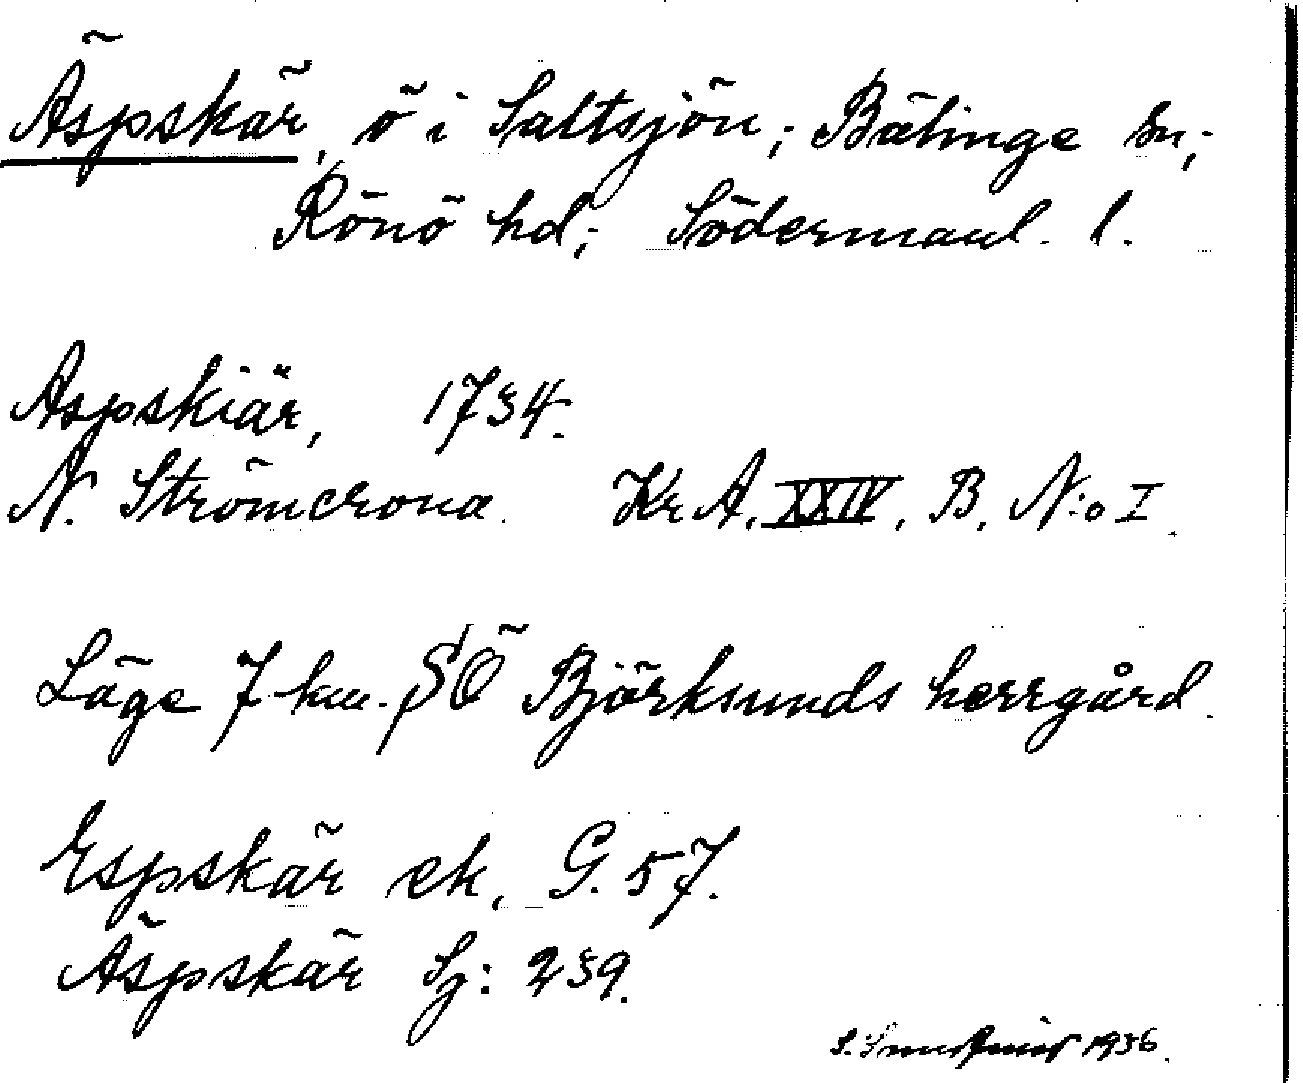 Äspskär, ö i Saltsjön; Bälinge sn;
Rönö hd; Södermanl. l.
Aspskiär, 1734.
N. Strömcrona. Kr A. XXIV, B, N:o I.
Läge 7 km. SÖ Björksunds herrgård.
Espskär ek. G. 57.
Äspskär Sj: 239.
S. 1936.